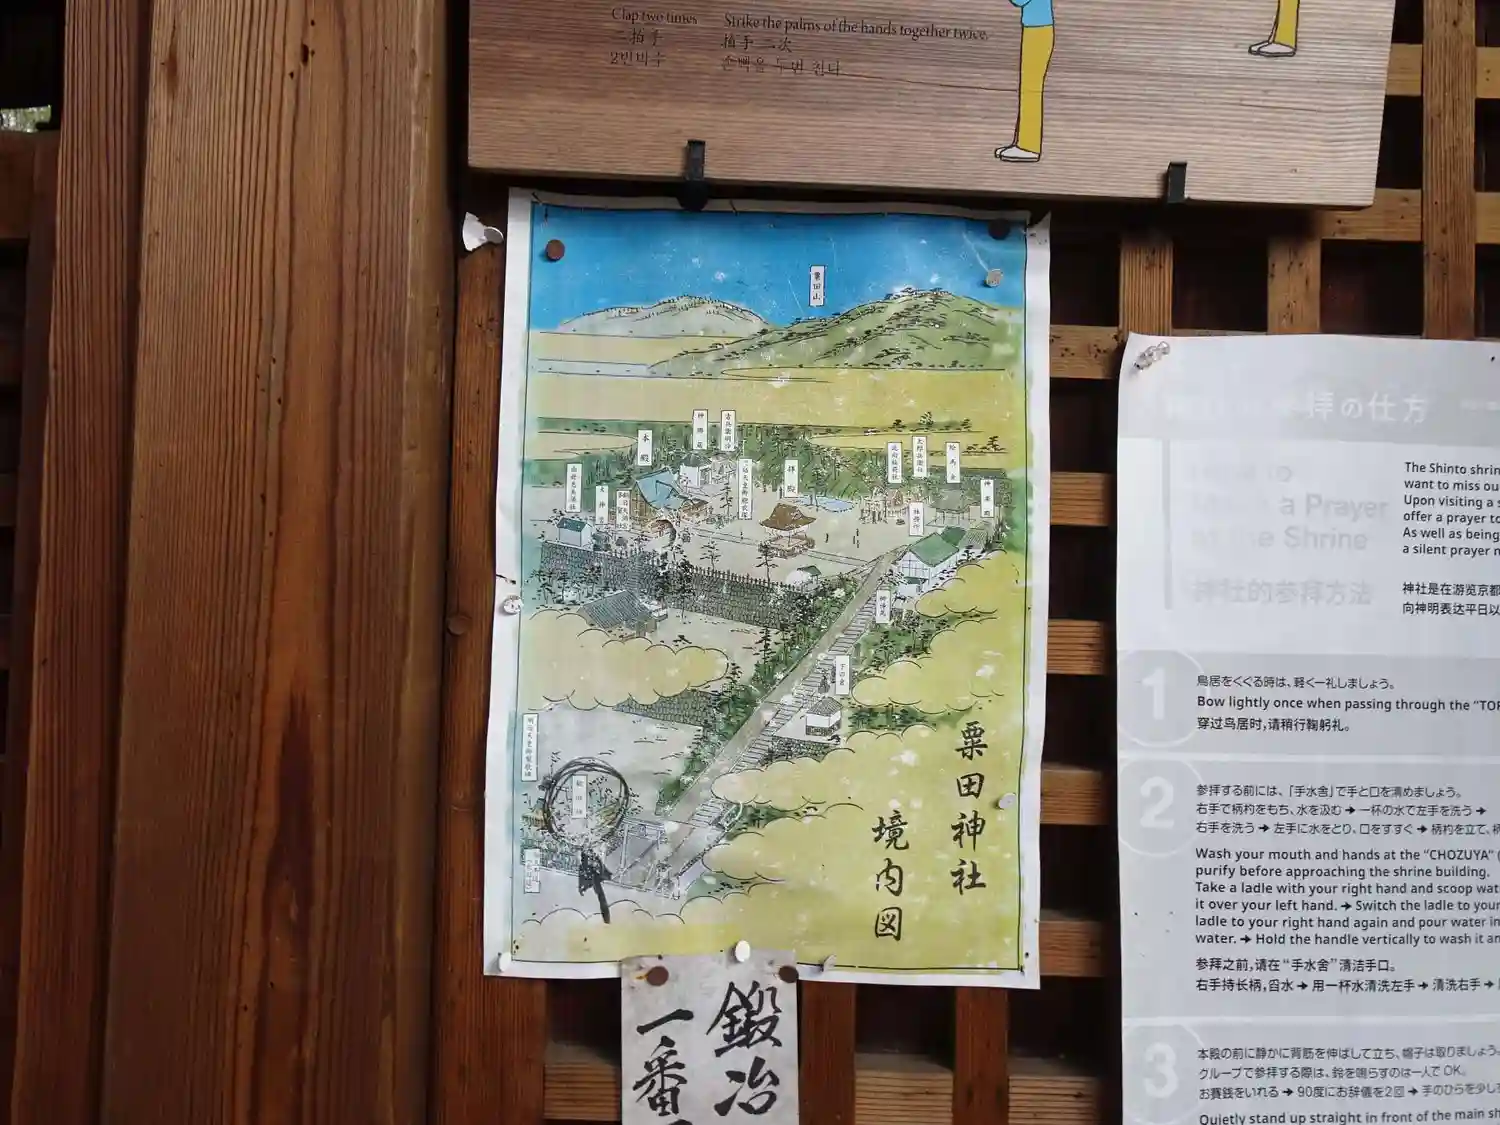 Clap two times
二拍手
2번박수
Strike the palms of the hands together twice.
拍手二次
손뼉을 두번 친다
粟田山
本殿
拝殿
絵馬舎
神楽殿
社務所
粟田神社
境内図
鍛冶
一番
拝の仕方
a Prayer
the Shrine
神社的参拜方法
The Shinto shrin
want to miss ou
Upon visiting a s
offer a prayer to
As well as being
a silent prayer m
神社是在游览京都
向神明表达平日以
1
鳥居をくぐる時は、軽く一礼しましょう。
Bow lightly once when passing through the "TOR
穿过鸟居时,请稍行鞠躬礼。
2
参拝する前には、「手水舎」で手と口を清めましょう。
右手で柄杓をもち、水を汲む→一杯の水で左手を洗う→
右手を洗う→左手に水をとり、口をすすぐ→柄杓を立て、柄
Wash your mouth and hands at the "CHOZUYA" (
purify before approaching the shrine building.
Take a ladle with your right hand and scoop wat
it over your left hand. → Switch the ladle to your
ladle to your right hand again and pour water in
water. → Hold the handle vertically to wash it an
参拜之前,请在“手水舍”清洁手口。
右手持长柄,舀水→用一杯水清洗左手→清洗右手→
3
本殿の前に静かに背筋を伸ばして立ち、帽子は取りましょう。
グループで参拝する際は、鈴を鳴らすのは一人でOK。
お賽銭をいれる→90度にお辞儀を2回→手のひらを少し
Quietly stand up straight in front of the main sh